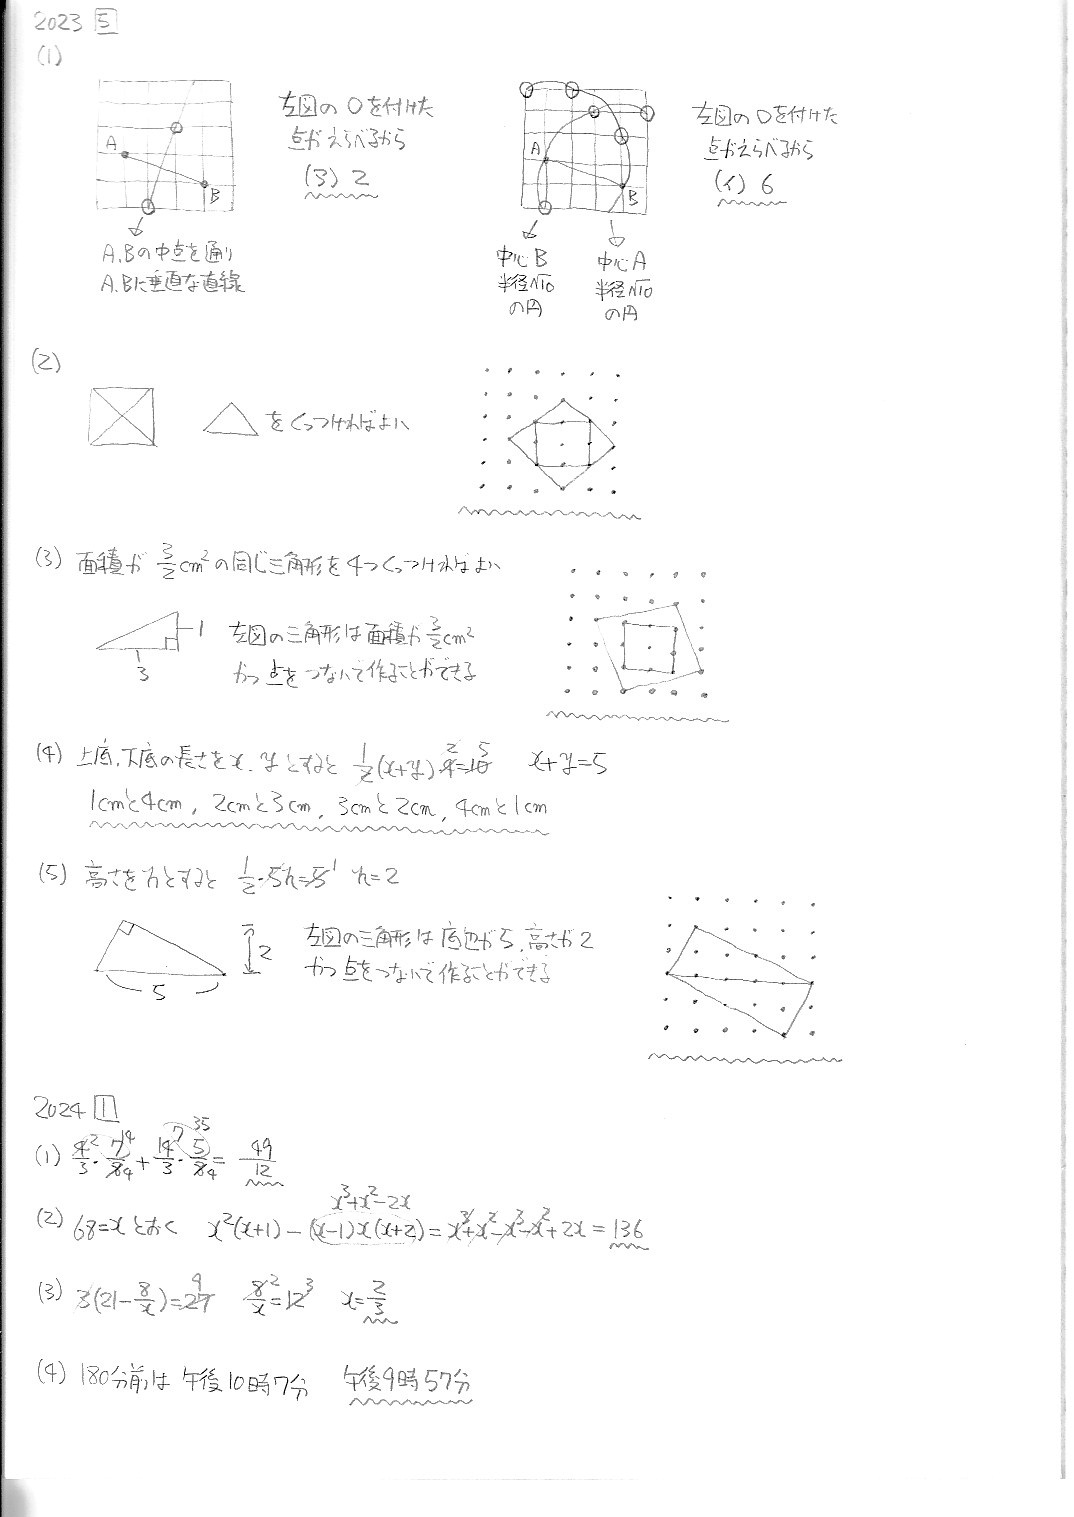 2023 5
(1)
A
B
左図の○を付けた
点がえらべるから
(ア) 2
A,Bの中点を通り
A,Bに垂直な直線
A
B
左図の○を付けた
点がえらべるから
(イ) 6
中心B
半径√10
の円
中心A
半径√10
の円
(2)
△をくっつければよい
(3) 面積が 3/2 cm²の同じ三角形を4つくっつければよい
1
3
左図の三角形は面積が 3/2 cm²
かつ点をつないで作ることができる
(4) 上底、下底の長さをx, yとすると 1/2(x+y)·4=10 x+y=5
2 5
1cmと4cm, 2cmと3cm, 3cmと2cm, 4cmと1cm
(5) 高さをhとすると 1/2·5h=5 h=2
1
5
2
左図の三角形は底辺が5、高さが2
かつ点をつないで作ることができる
2024 1
(1) 4/3 · 7/8 + 14/3 · 5/8 = 49/12
x³+x²-2x
(2) 68=xとおく x²(x+1)-(x-1)x(x+2)=x³+x²-x³-x²+2x=136
(3) 3(21-8/x)=27 8/x=12 x=2/3
(4) 180分前は午後10時7分 午後9時57分